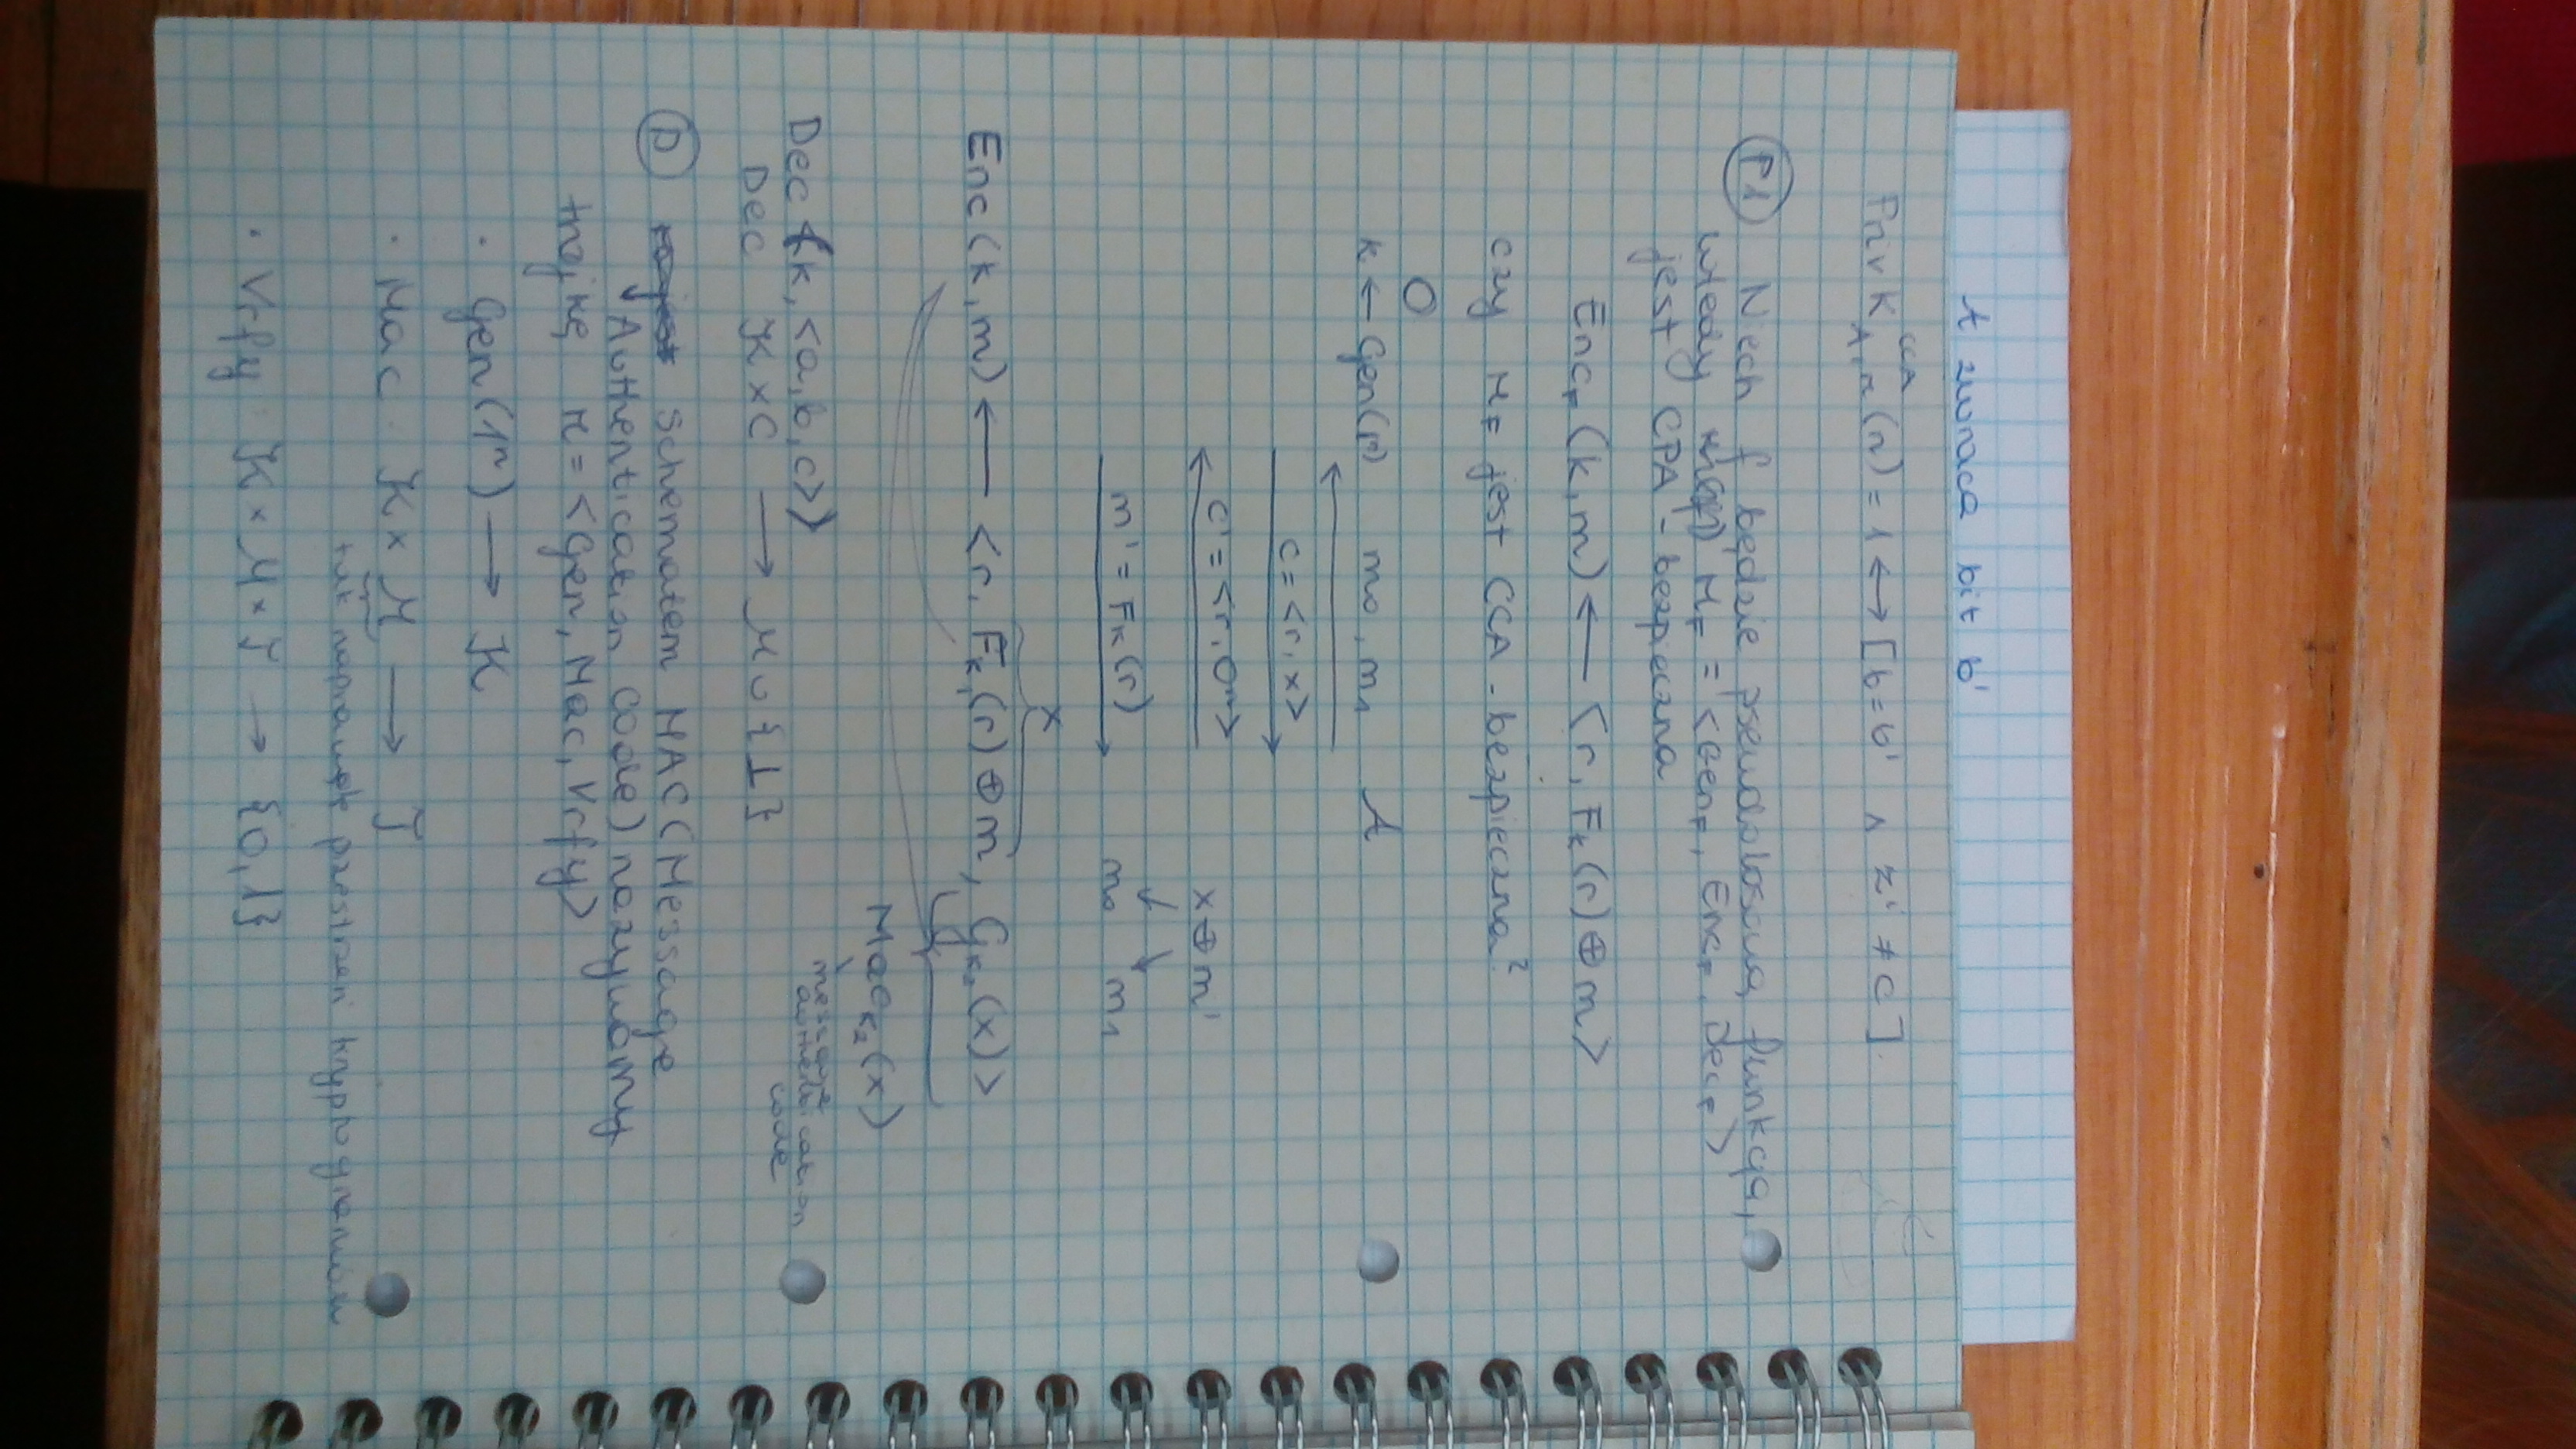 A zwraca bit b'
PrivK^{cca}_{A,π}(n) = 1 ↔ [b=b' ∧ z' ≠ c].
P1 Niech f będzie pseudolosową funkcją,
wtedy π_F = <Gen_F, Enc_F, Dec_F>
jest CPA-bezpieczna
Enc_F(k,m) ← <r, F_k(r)⊕m>
czy π_F jest CCA-bezpieczna?
O
k ← Gen(n) m₀, m₁ A
c = <r, x>
c' = <r, 0^m> x⊕m'
m' = F_k(r) m₀ m₁
x
Enc(k,m) ← <r, F_{k₁}(r)⊕m, G_{k₂}(x)>
Mac_{k₂}(x)
message authentication code
Dec(k, <a,b,c>)
Dec K×C → M∪{⊥}
D Schematem MAC (Message
Authentication Code) nazywamy
trójkę π = <Gen, Mac, Vrfy>
· Gen(1ⁿ) → K
· Mac K×M → T
tak naprawdę przestrzeń kryptogramów
· Vrfy K×M×T → {0,1}